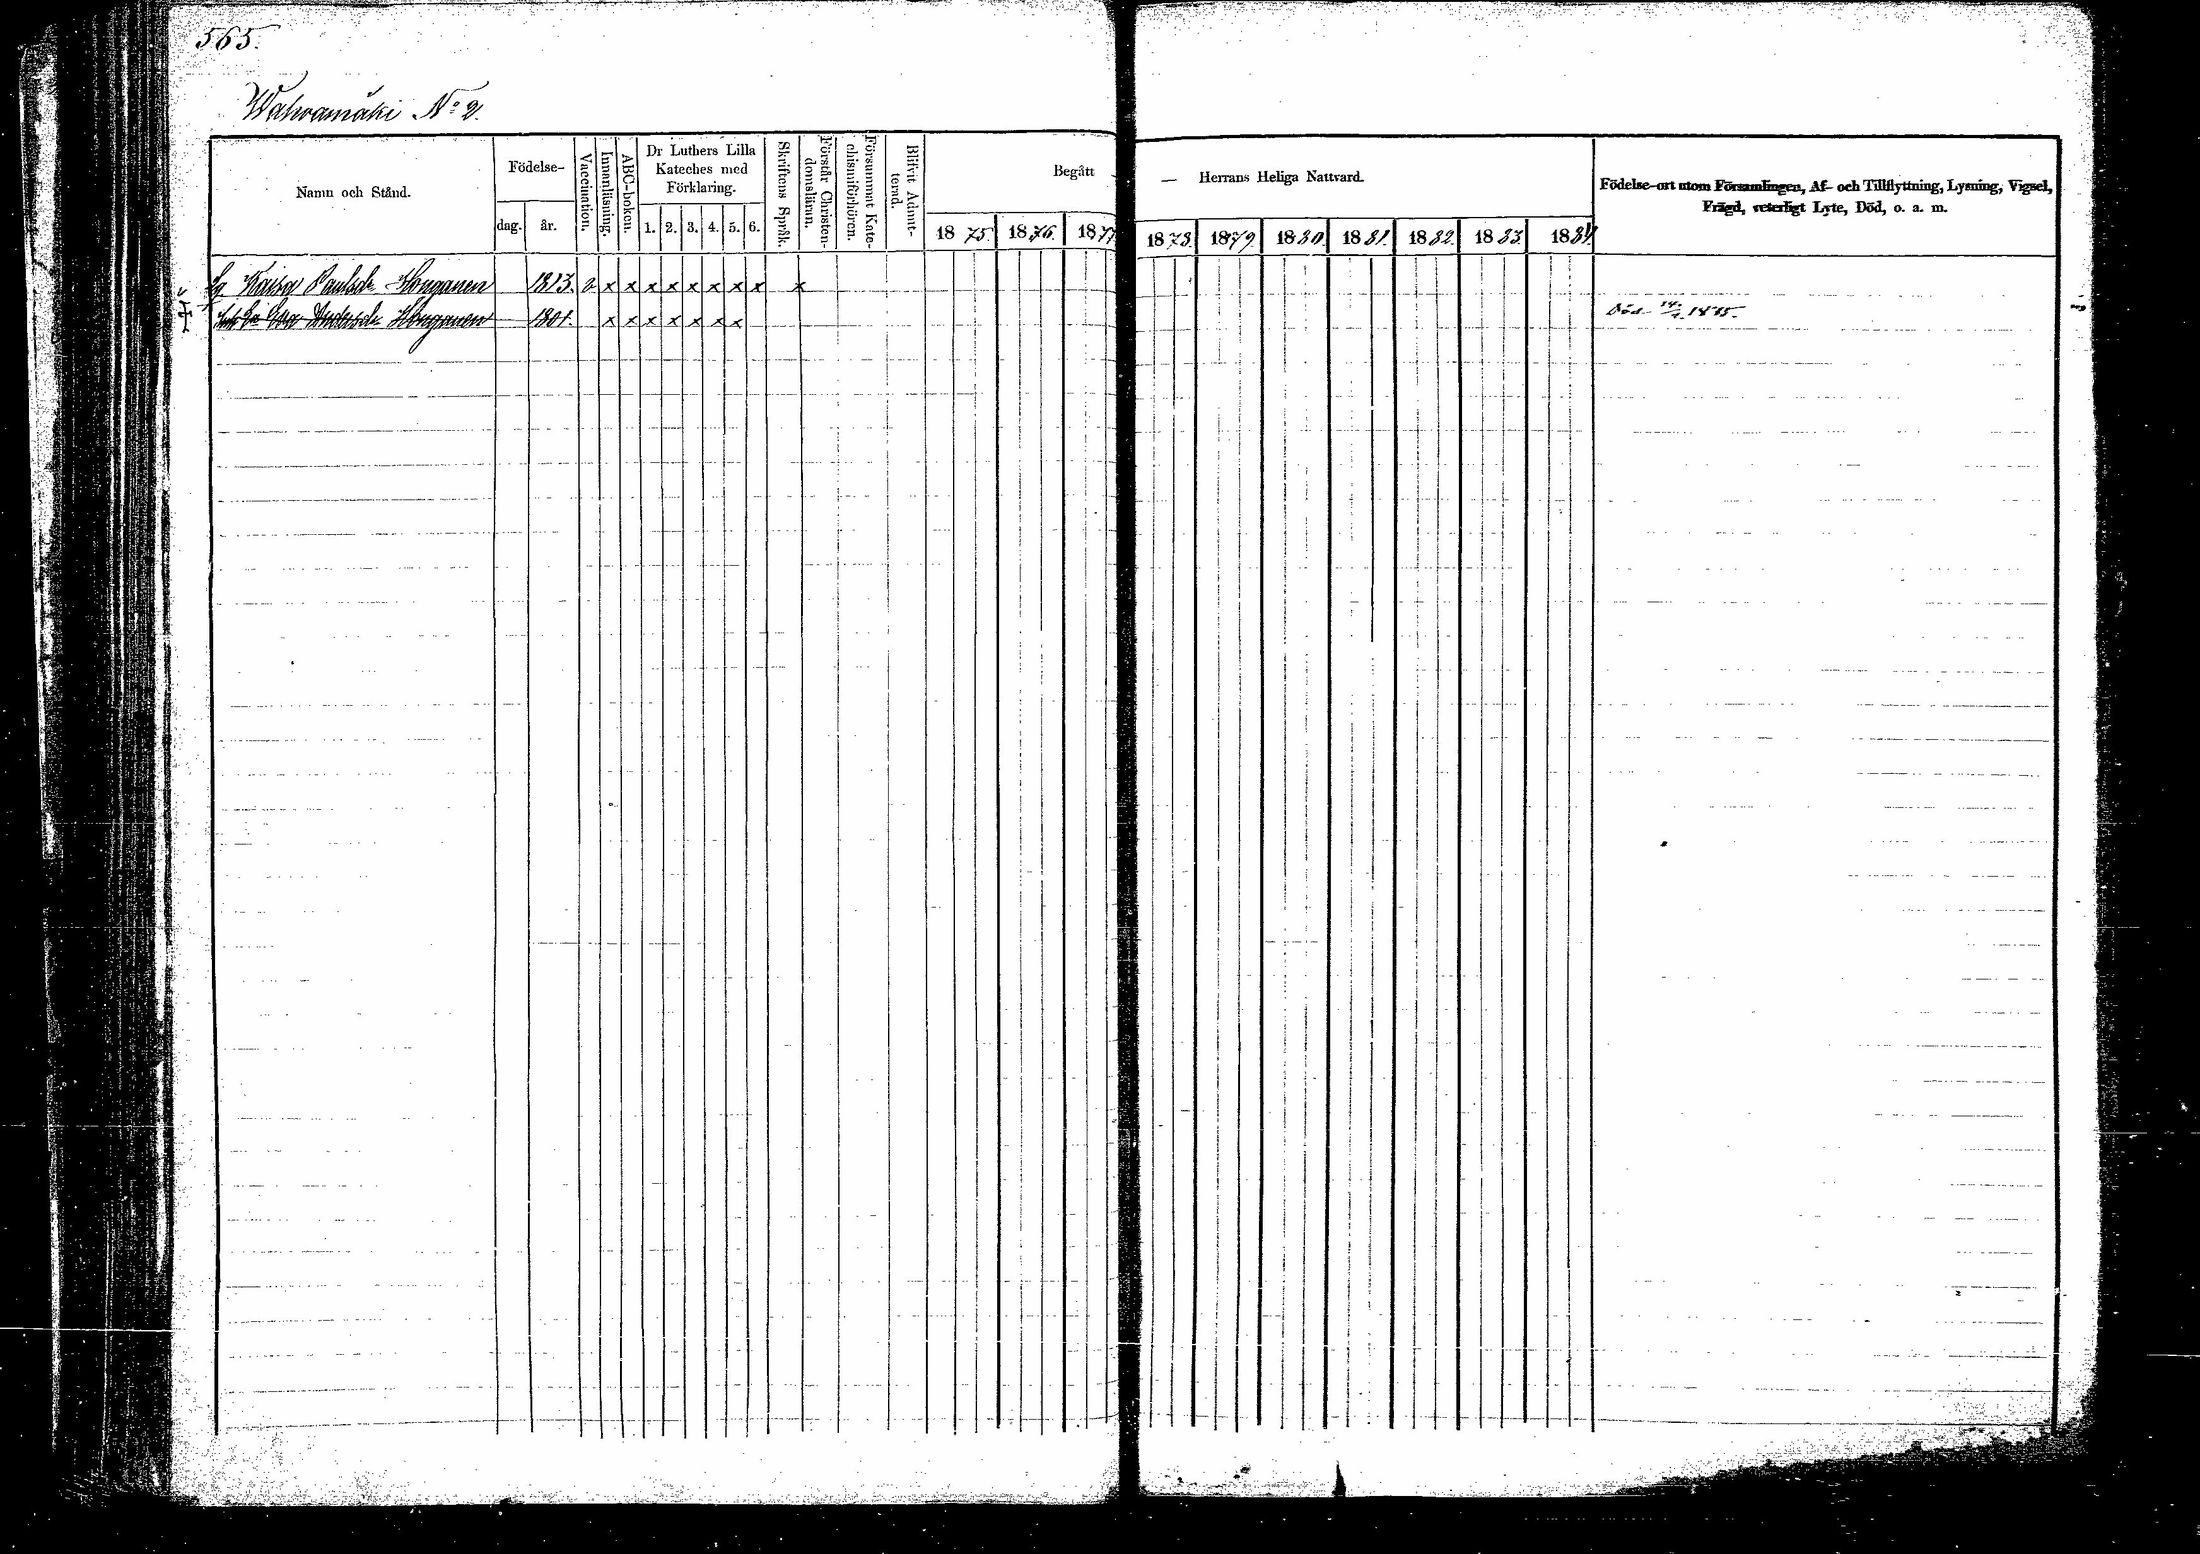 565.
Wahvamäki No 2.
Namn och Stånd.
Födelse-
dag.
år.
Vaccination.
Innanläsning.
ABC-boken.
Dr Luthers Lilla
Kateches med
Förklaring.
1. 2. 3. 4. 5. 6.
Skriftens Språk.
Förstår Christen-
domslämn.
Försummat Kate-
chismiförhören.
Blifvit Admit-
terad.
Begått — Herrans Heliga Nattvard.
1875. 1876. 1877 1878. 1879. 1880. 1881. 1882. 1883. 1884.
Födelse-ort utom Församlingen, Af- och Tillflyttning, Lysning, Vigsel,
Frägd, veterligt Lyte, Död, o. a. m.
Kaisa Paulsdr Honganen 1813. v x x x x x x x x x
Enk. Eva Andersdr Honganen 1801. x x x x x x x Död 14/4 1875.